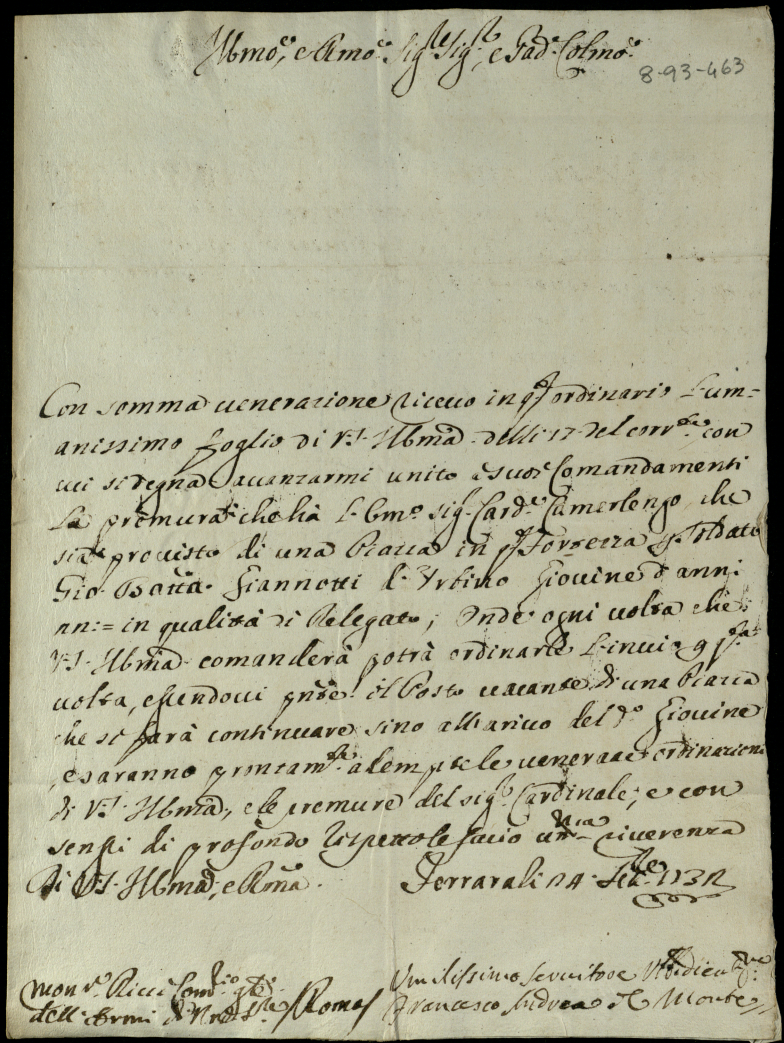 Illmo, e Rmo Sigre Sigre, e Pad. Colmo
8-93-463
Con somma venerazione ricevo in qsto ordinario l'um=
anissimo foglio di V.S. Illma delli 17 del corrte, con
cui si degna avanzarmi unito a suoi Comandamenti
la premura che ha l'Emo Sig. Card. Camerlengo, che
sia provisto di una Piazza in qsta Fortezza il Soldato
Gio. Batta Giannotti d'Urbino Giovine d'anni
in qualità di Relegato; Onde ogni volta che
V.S. Illma comanderà potrà ordinarle l'invio p qsta
volta, essendovi il Posto vacante di una Piazza
che si farà continuare sino all'arivo del do Giovine
e saranno prontamte adempite le venerate ordinazioni
di V.S. Illma, e le premure del Sig. Cardinale; e con
sensi di profondo rispetto le facio riverenza
Di V.S. Illma, e Rma. Ferrara li 24
Monsr Ricci Comrio
dell'Armi di Roma
Umilissimo Servitore
Francesco Andrea Monte